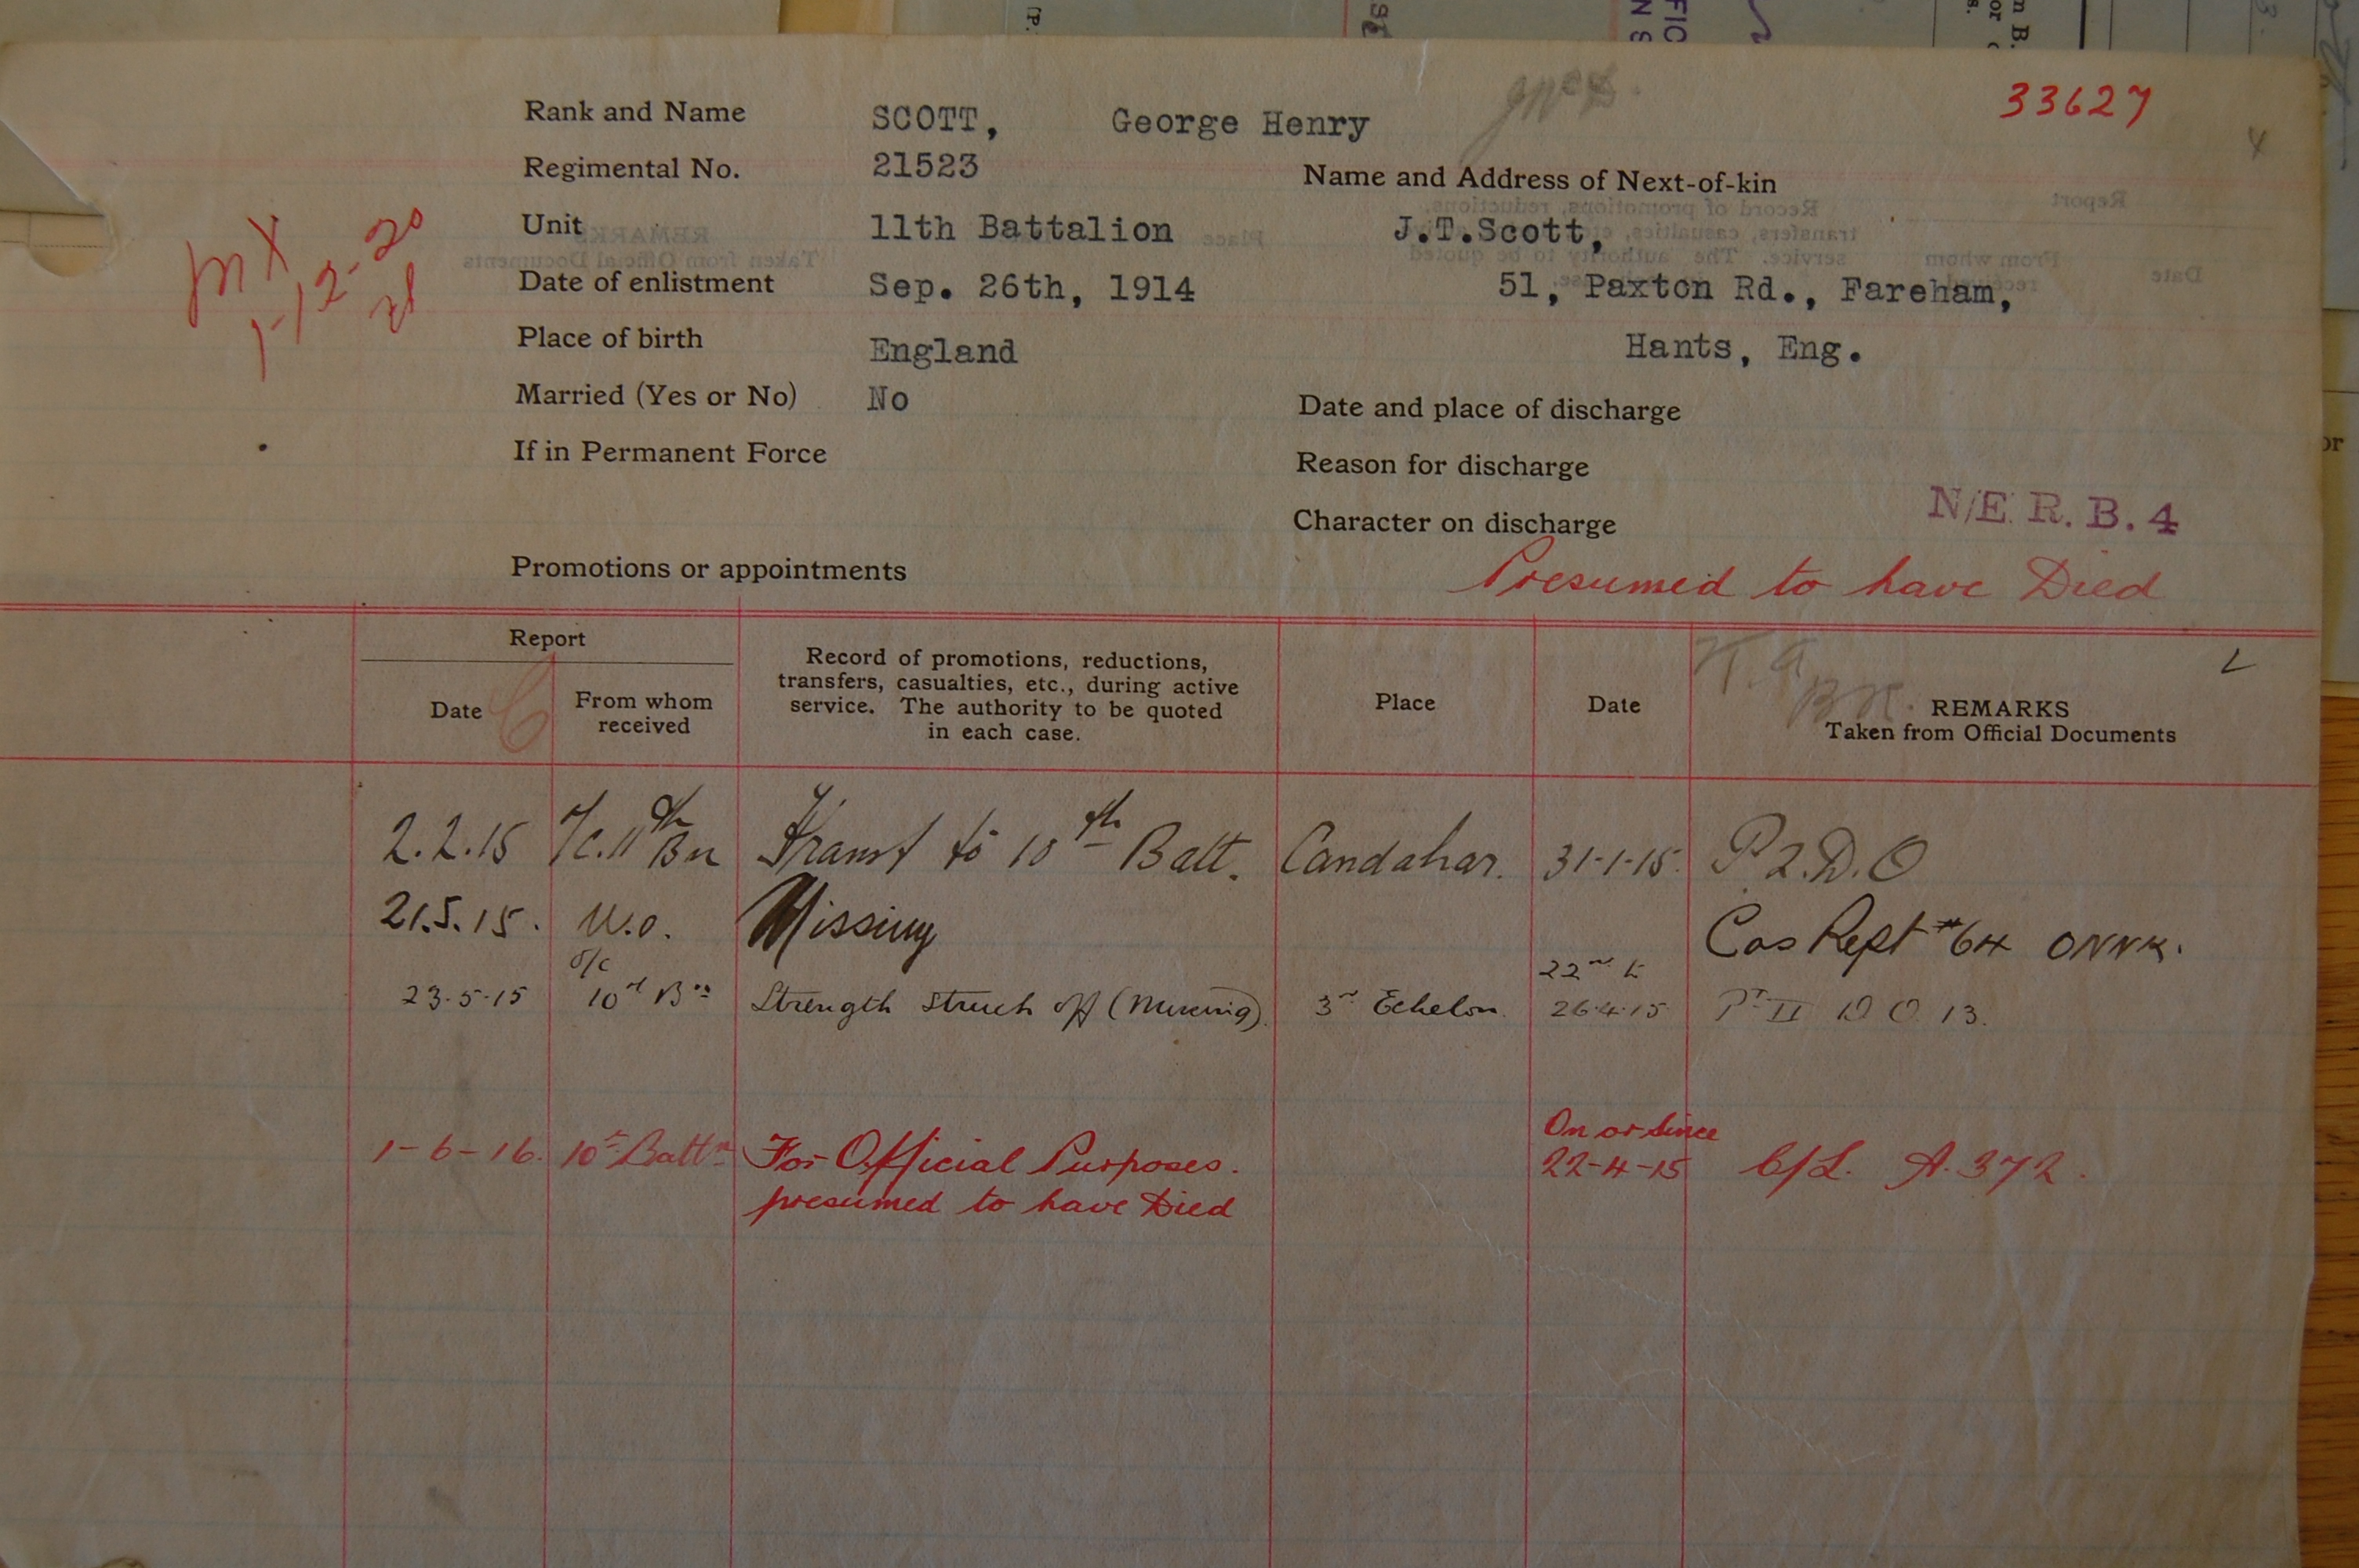 33627
Rank and Name SCOTT, George Henry
Regimental No. 21523
Name and Address of Next-of-kin
Unit 11th Battalion
J.T.Scott,
Date of enlistment Sep. 26th, 1914
51, Paxton Rd., Fareham,
Place of birth England
Hants, Eng.
Married (Yes or No) No
Date and place of discharge
If in Permanent Force
Reason for discharge
N/E. R. B. 4
Character on discharge
Promotions or appointments
Presumed to have Died
Report
Date
From whom
received
Record of promotions, reductions,
transfers, casualties, etc., during active
service. The authority to be quoted
in each case.
Place
Date
REMARKS
Taken from Official Documents
2.2.15 11th Bn Transf to 10th Batt. Candahar. 31-1-15. P 2.D.O
21.5.15. W.O. Missing Cas Rept #64
O/C 22nd to
23.5.15 10th Bn Strength struck off (Missing). 3rd Echelon. 26.4.15 Pt II D O 13.
On or Since
1-6-16. 10th Battn For Official Purposes. 22-4-15 C/L. A.372.
presumed to have Died